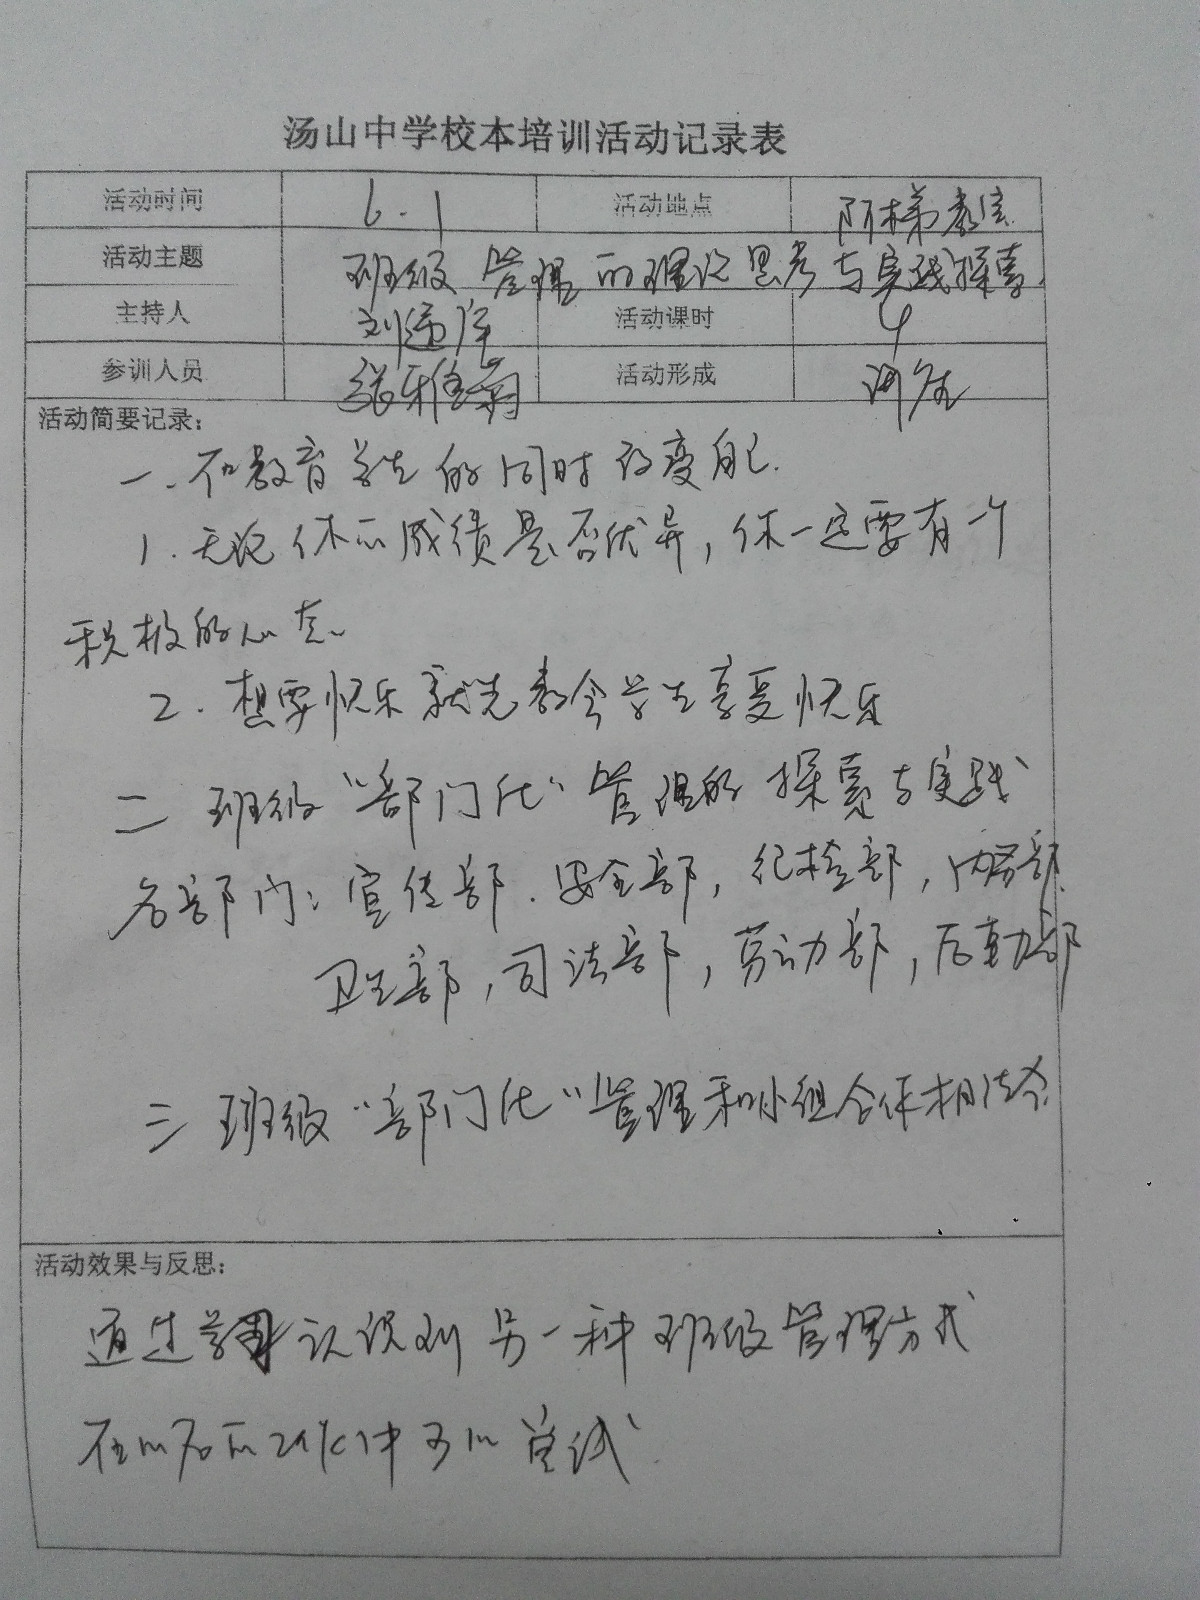 汤山中学校本培训活动记录表
活动时间 6.1 活动地点 阶梯教室
活动主题 班级管理的理论思考与实践探索
主持人 刘 活动课时 4
参训人员 张雅菊 活动形成 讲座
活动简要记录:
一.在教育学生的同时改变自己.
1.无论你的成绩是否优异,你一定要有一个
积极的心态
2.想要快乐就先教会学生享受快乐
二 班级“部门化”管理的探索与实践
各部门:宣传部.安全部,纪检部,内务部.
卫生部,司法部,劳动部,后勤部
三 班级“部门化”管理和小组合作相结合.
活动效果与反思:
通过学习认识到另一种班级管理方式
在以后的工作中可以尝试.